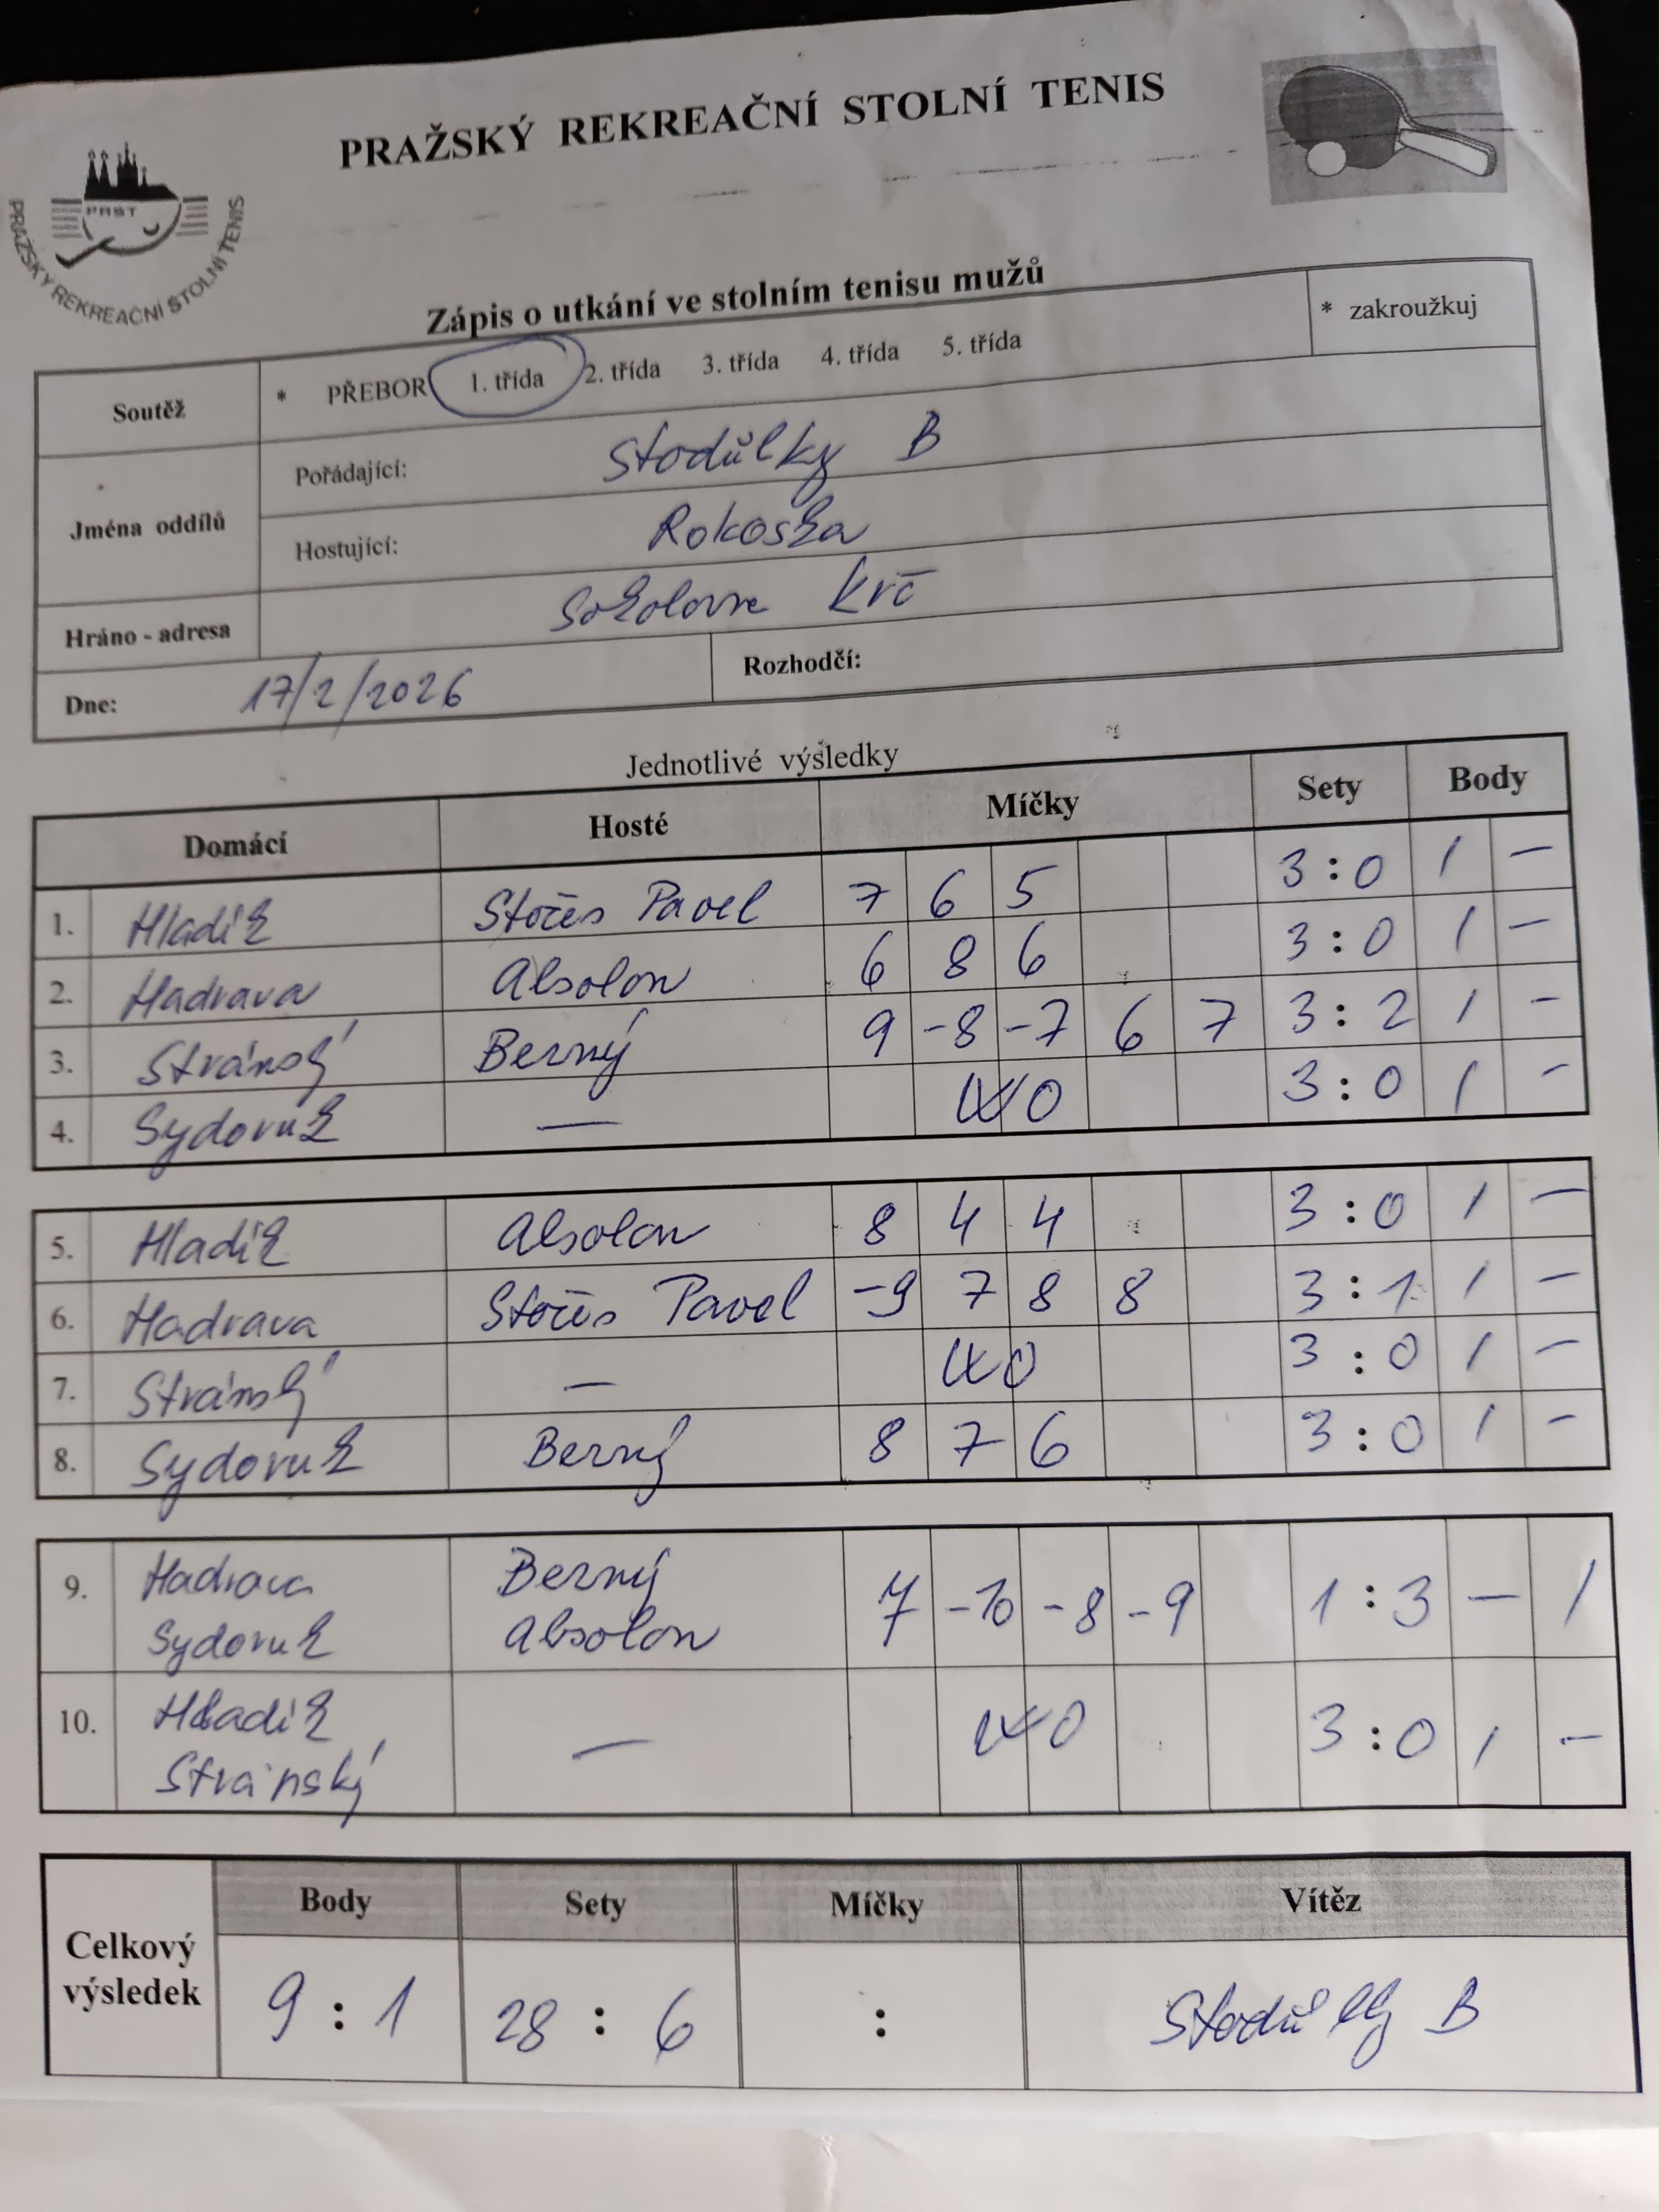 PRAŽSKÝ REKREAČNÍ STOLNÍ TENIS
PRST
PRAŽSKÝ REKREAČNÍ STOLNÍ TENIS
Zápis o utkání ve stolním tenisu mužů
Soutěž * PŘEBOR 1. třída 2. třída 3. třída 4. třída 5. třída * zakroužkuj
Jména oddílů
Pořádající: Stodůlky B
Hostující: Rokoska
Hráno - adresa Sokolovna Krč
Dne: 17/2/2026 Rozhodčí:
Jednotlivé výsledky
Domácí Hosté Míčky Sety Body
1. Hladík Stočes Pavel 7 6 5 3:0 1 –
2. Hadrava Absolon 6 8 6 3:0 1 –
3. Stránský Berný 9 -8 -7 6 7 3:2 1 –
4. Sydoruk — WO 3:0 1 –
5. Hladík Absolon 8 4 4 3:0 1 –
6. Hadrava Stočes Pavel -9 7 8 8 3:1 1 –
7. Stránský — WO 3:0 1 –
8. Sydoruk Berný 8 7 6 3:0 1 –
9. Hadrava Berný 7 -10 -8 -9 1:3 – 1
Sydoruk Absolon
10. Hladík — WO 3:0 1 –
Stránský
Celkový výsledek
Body Sety Míčky Vítěz
9:1 28:6 : Stodůlky B